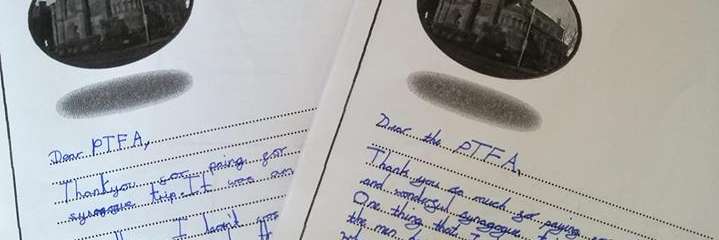 Dear PTFA,
Thankyou sor paing for
synagogue trip. It was am
I learnt
Dear the PTFA,
Thank you so much for paying
and wonderful synagogue
One thing that I
the men